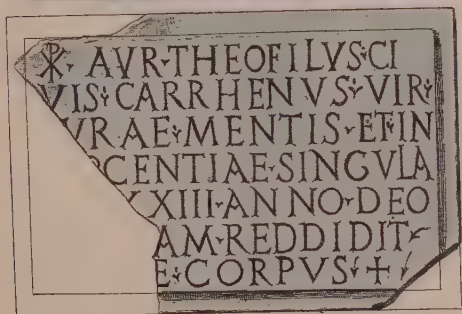 ☧ · AVR · THEOFILVS · CI
VIS · CARRHENVS · VIR ·
VRAE · MENTIS · ET · IN
CENTIAE · SINGVLA
XXIII · ANNO · DEO
AM · REDDIDIT
E · CORPVS · +